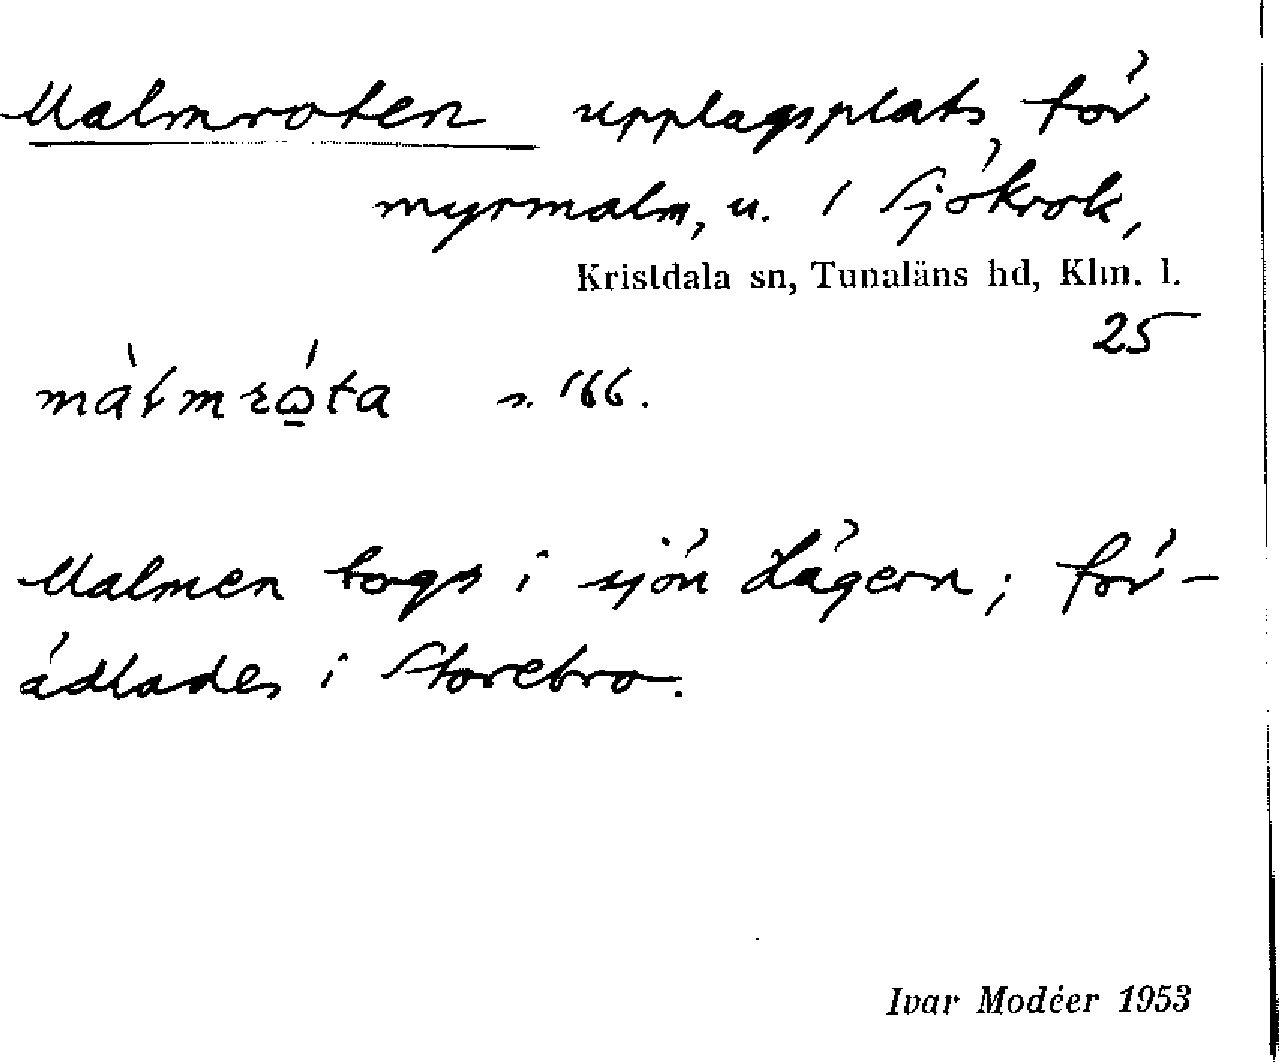 Malmroten upplagsplats för
myrmalm, u. / Sjökrok,
Kristdala sn, Tunaläns hd, Klm. l.
25
s. 166.
Malmen togs i sjön Lägern; för-
ädlades i Storebro.
Ivar Modéer 1953